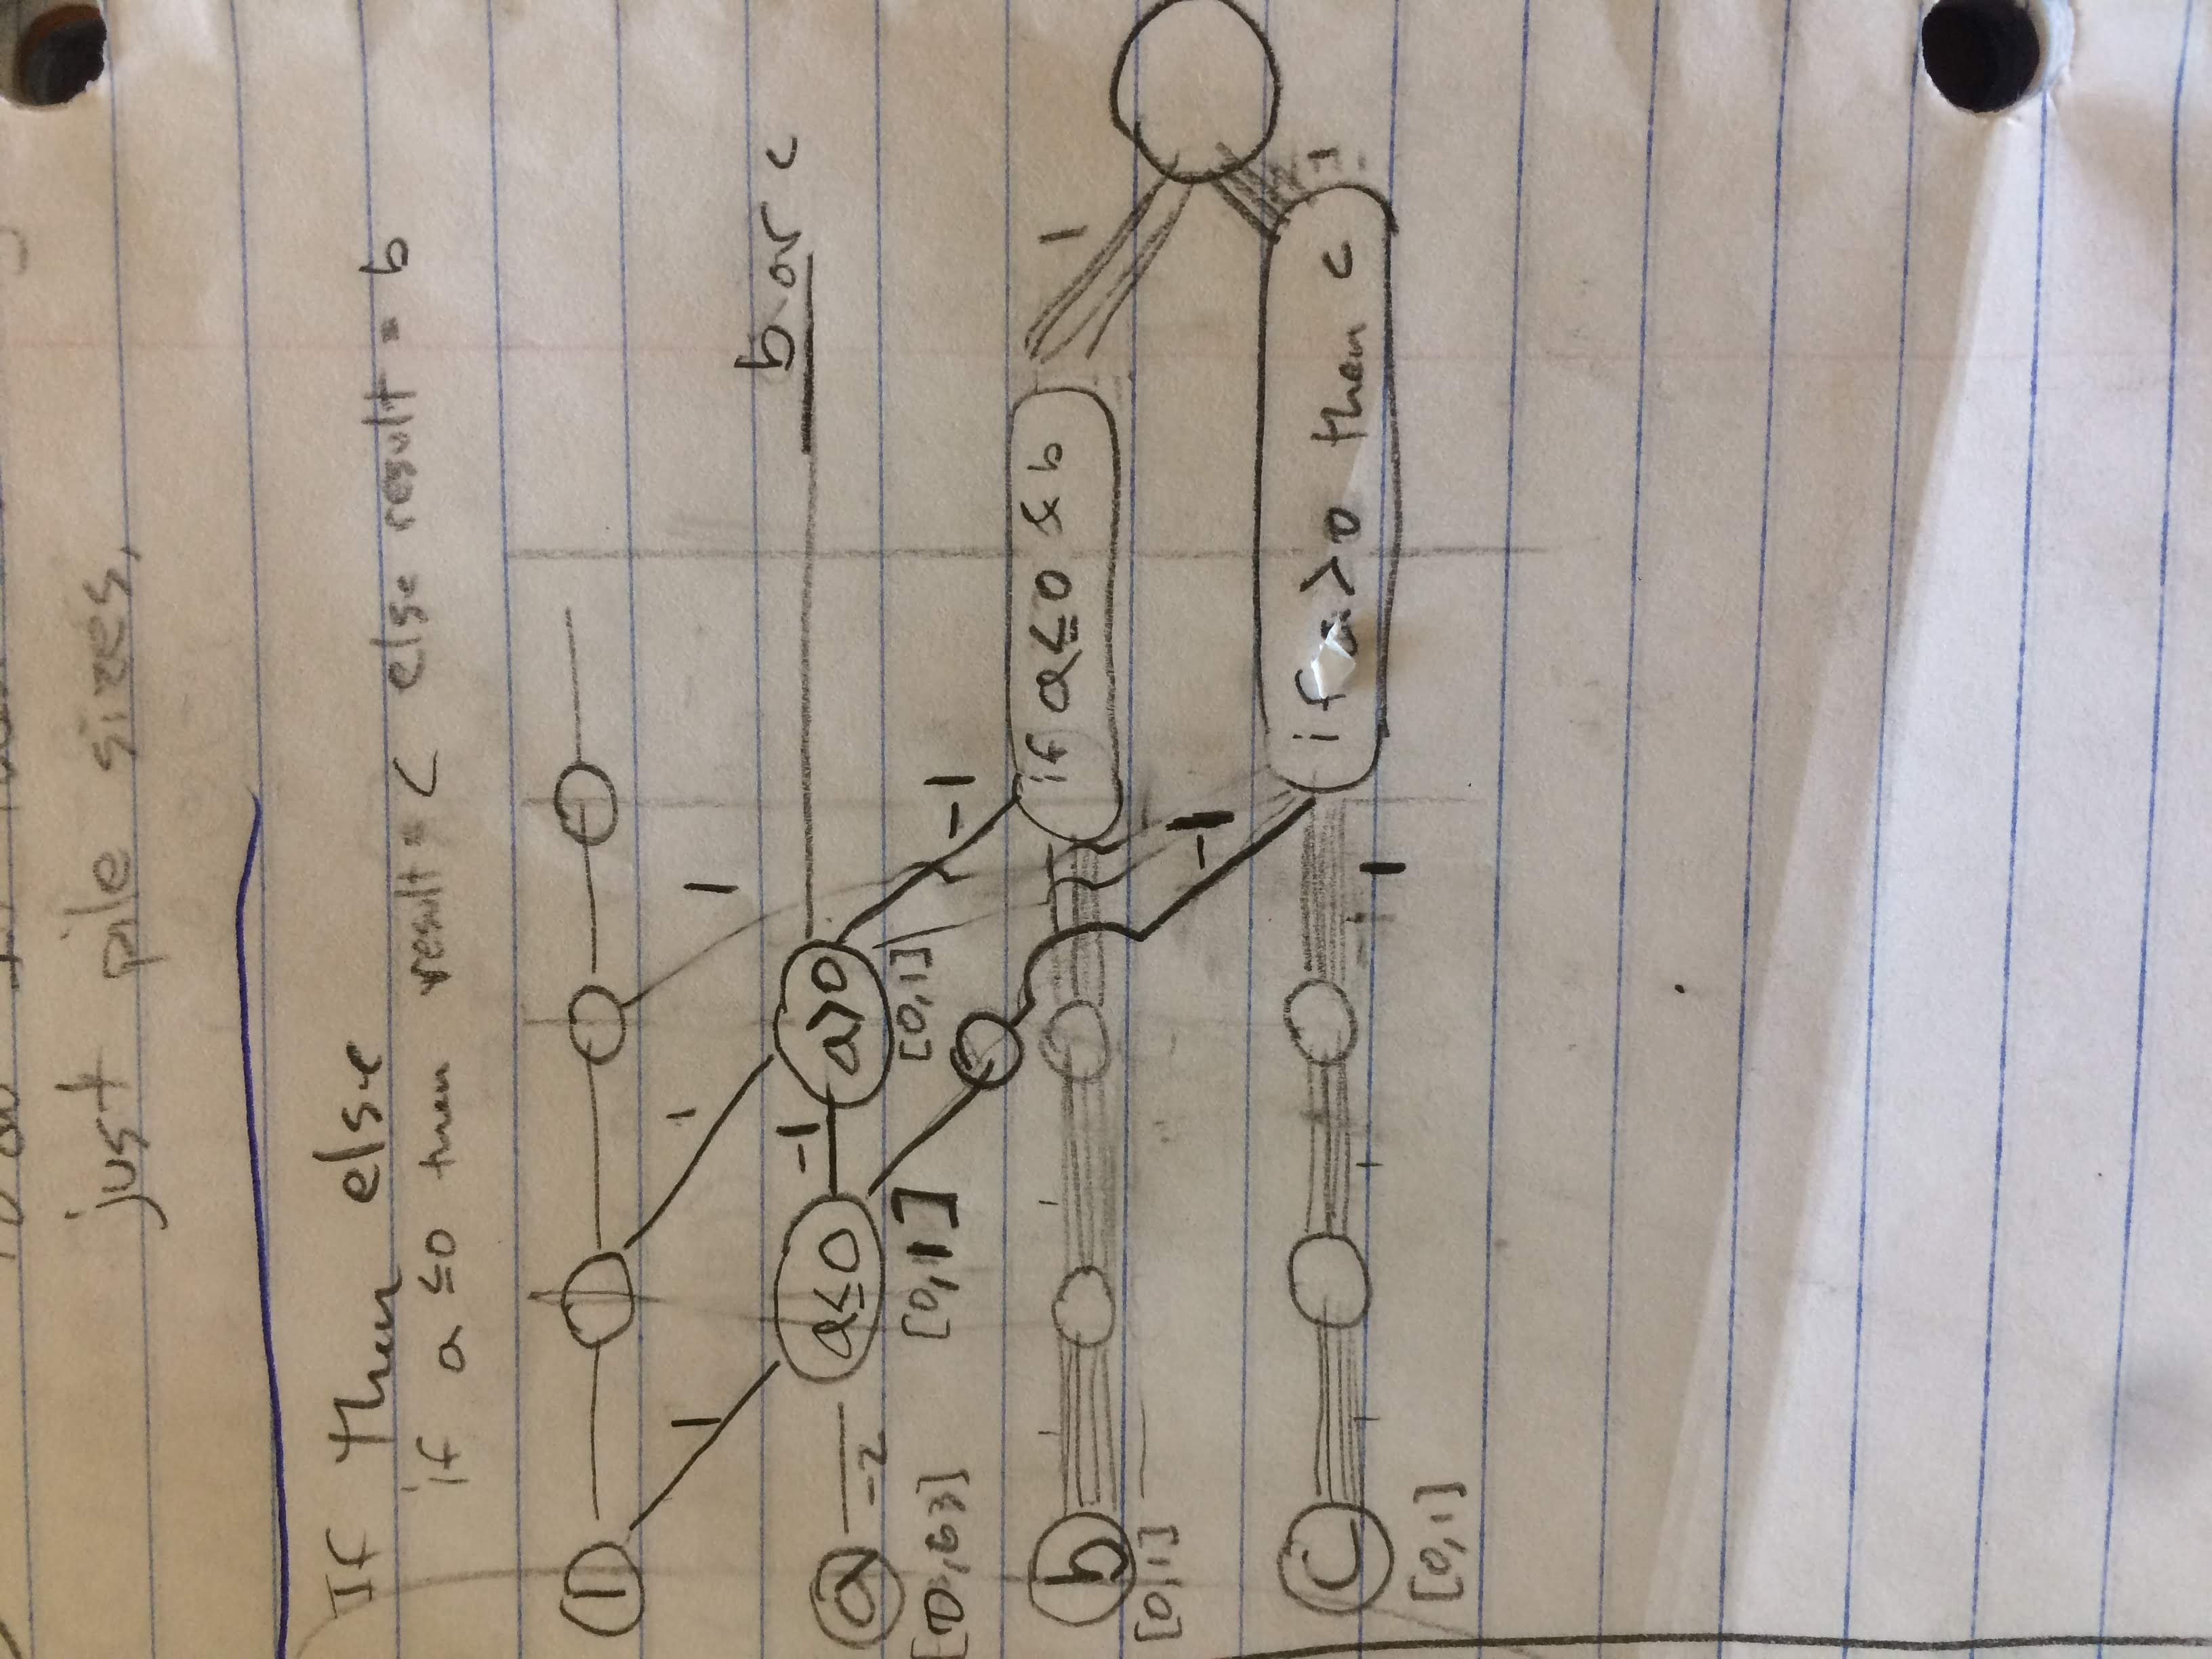 just pile sizes,
If then else
if a ≤0 then result = c else result = b
1
1 1 1
b or c
a -2 a≤0 -1 a>0
[0,63] [0,1] [0,1]
-1
b 1 1 if a≤0 & b 1
[0,1]
-1
c 1 1 1 if a>0 then c 1
[0,1]